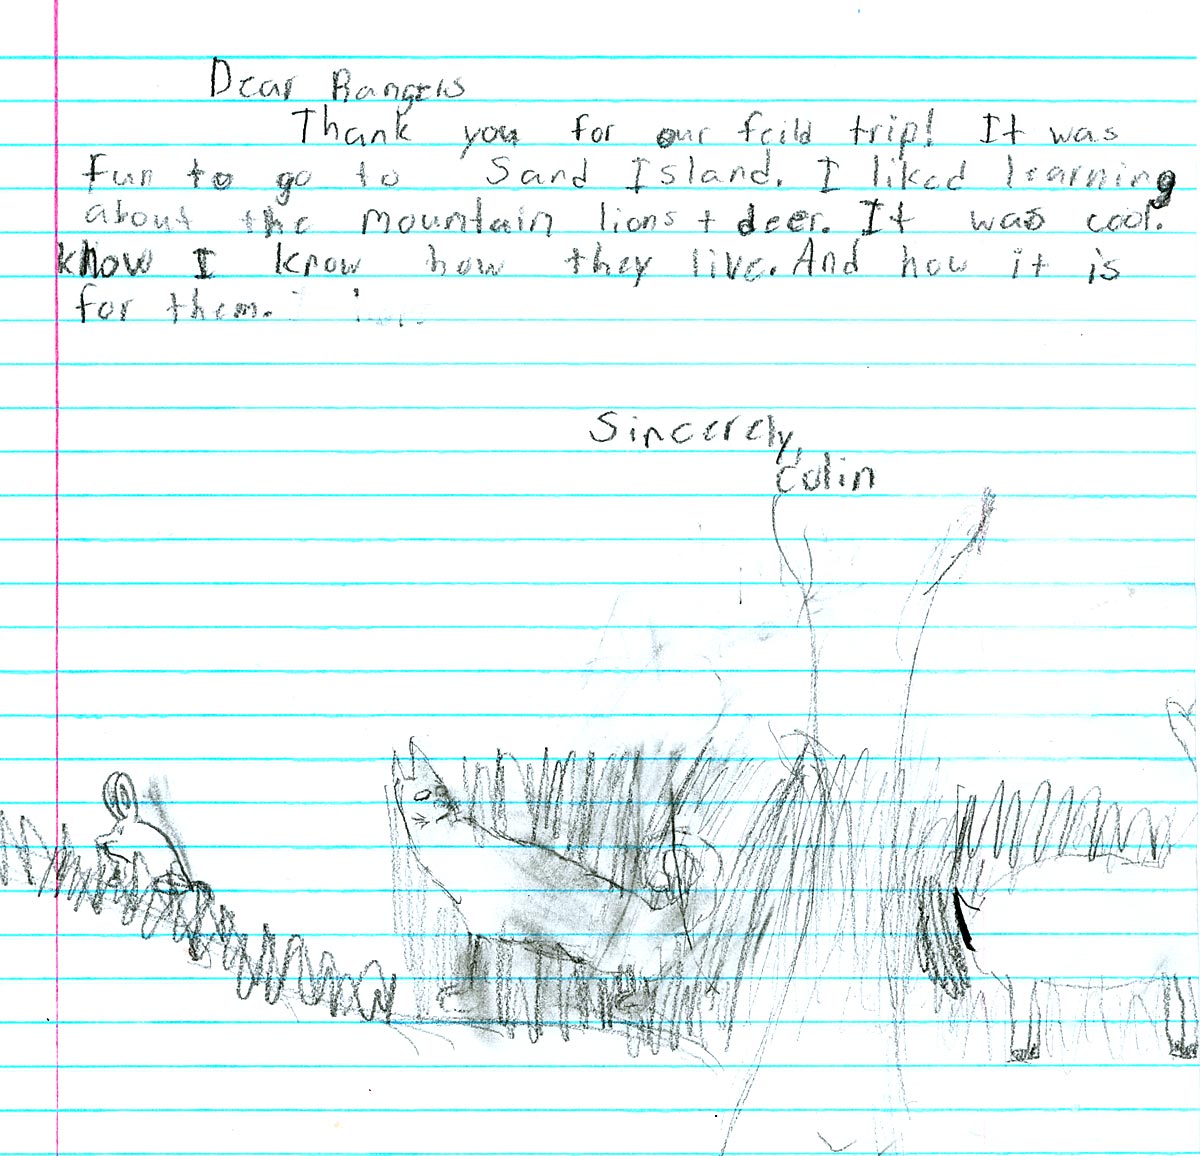 Dear Rangers
Thank you for our feild trip! It was
fun to go to Sand Island. I liked learning
about the mountain lions + deer. It was cool.
know I know how they live. And how it is
for them.
Sincerely,
Colin